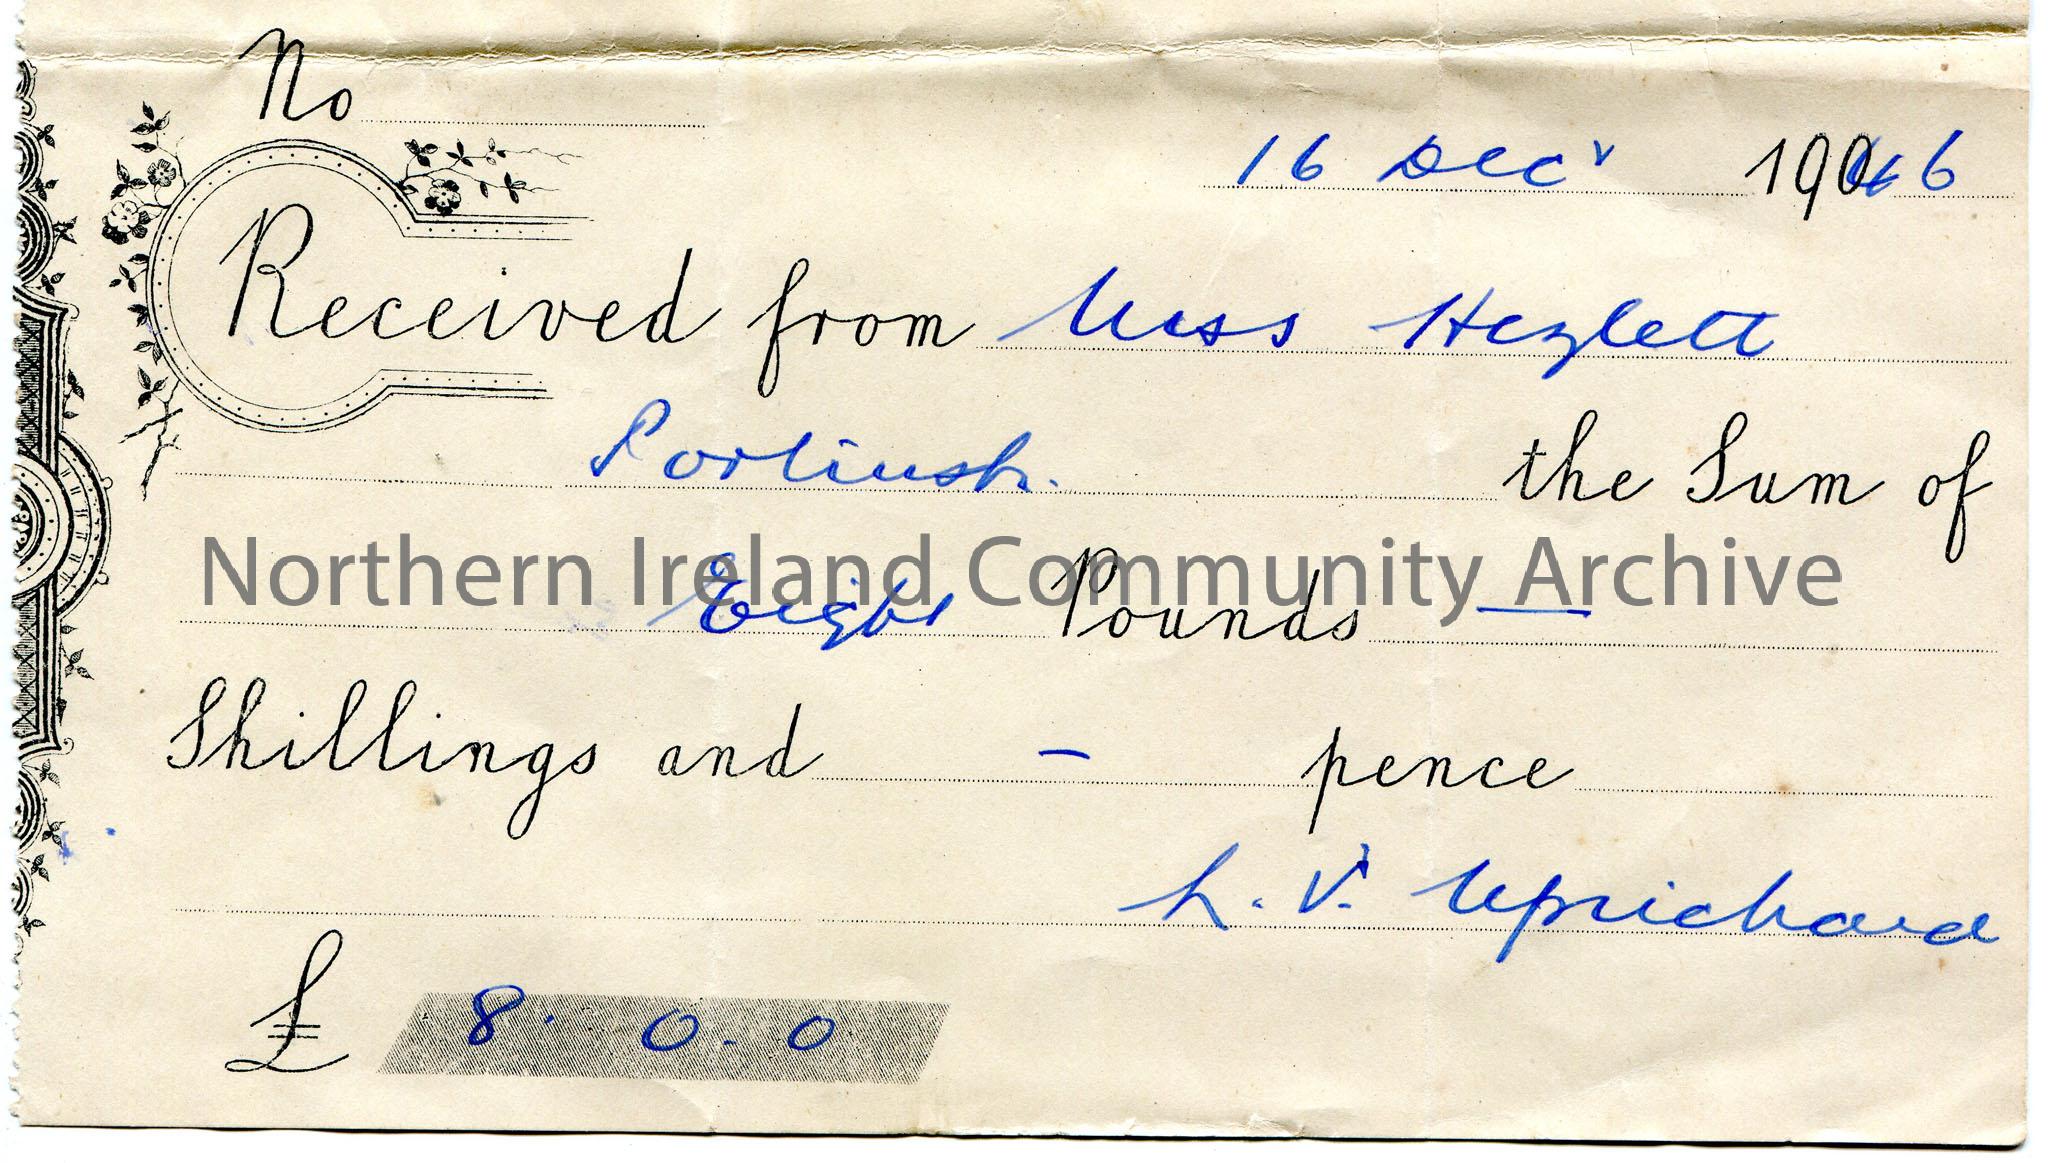 No
16 Decr 1946
Received from Miss Hezlett
Portrush. the Sum of
Northern Ireland Community Archive
Eight Pounds —
Shillings and — pence
L. V. Uprichard
£ 8. 0. 0